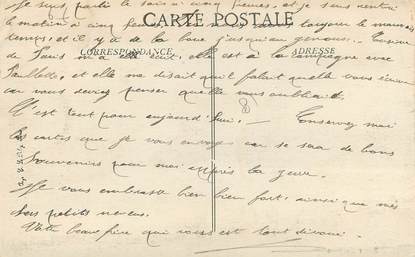 Je suis partie le soir à cinq heures, et je suis rentré
le matin à cinq heures toujours le mauvais
CARTE POSTALE
temps, et il y a de la boue jusqu'au genoux.
CORRESPONDANCE ADRESSE
de Paris m'a écrit, elle est à la campagne avec
Paulette, et elle me disait qu'il falait quelle vous écrive
car vous deviez penser quelle vous oubliait.
8
C'est tout pour aujourd'hui. — Conservez moi
les cartes que je vous envoye car se sera de bons
Souvenirs pour moi après la guerre.
Je vous embrasse bien bien fort, ainsi que mes
chers petits neveux.
Votre beau frère qui vous est tout dévoué.